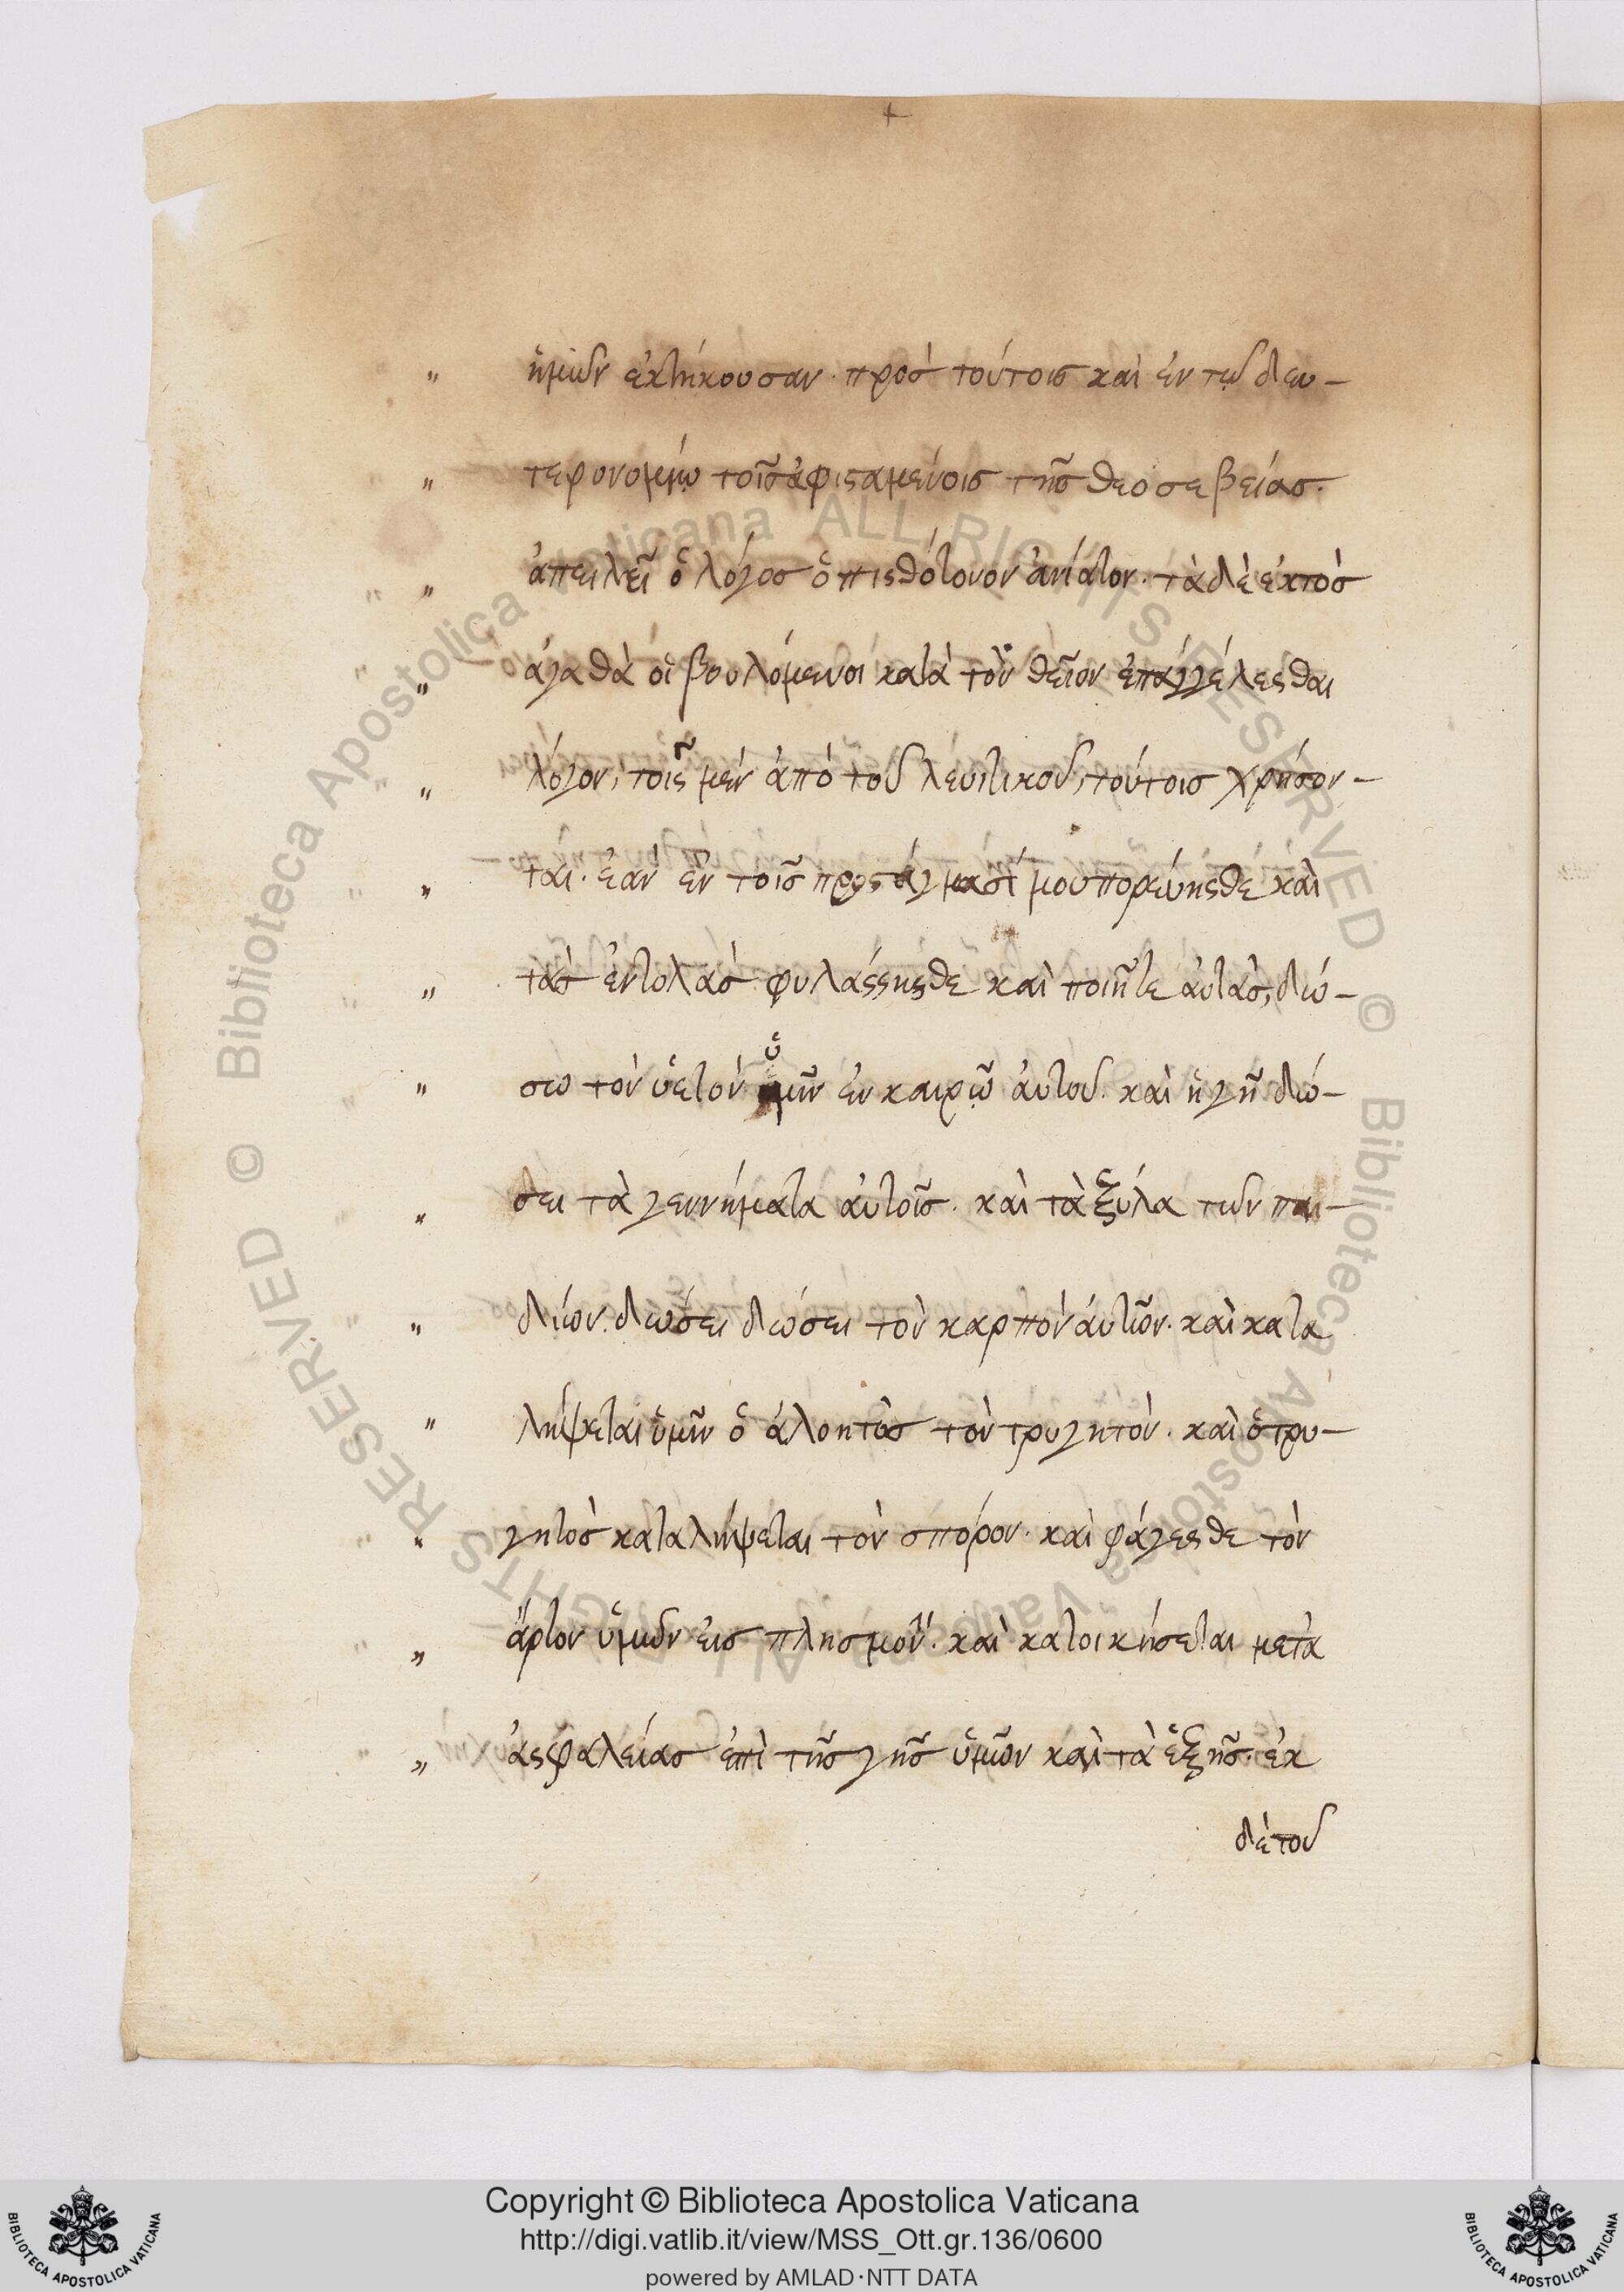 +
" ἡμῶν ἐκτήκουσαν· πρὸς τούτοις καὶ ἐν τῷ δευ–
" τερονομίῳ τοῖς ἀφισαμένοις τῆς θεοσεβείας·
" ἀπειλεῖ ὁ λόγος ὀπισθότονον ἀνίατον· τὰ δὲ ἐκτὸς
" ἀγαθὰ οἱ βουλόμενοι κατὰ τὸν θεῖον ἐπαγγέλεσθαι
" λόγον, τοῖς μὲν ἀπὸ τοῦ λευιτικοῦ, τούτοις χρήσον–
" ται· ἐὰν ἐν τοῖς προστάγμασί μου πορεύησθε καὶ
" τὰς ἐντολὰς φυλάσσησθε καὶ ποιῆτε ἀυτὰς, δώ–
" σω τὸν ὑετὸν ὑμῖν ἐν καιρῷ ἀυτοῦ· καὶ ἡ γῆ δώ–
" σει τὰ γεννήματα ἀυτοῖς· καὶ τὰ ξύλα τῶν παι–
" δίων· δώσει δώσει τὸν καρπὸν ἀυτῶν· καὶ κατα
" λήψεται ὑμῖν ὁ ἀλοητὸς τὸν τρυγητὸν· καὶ ὁ τρυ–
" γητὸς καταλήψεται τὸν σπόρον· καὶ φάγεσθε τὸν
" ἄρτον ὑμῶν εἰς πλησμονήν· καὶ κατοικήσεται μετὰ
" ἀσφαλείας ἐπὶ τῆς γῆς ὑμῶν καὶ τὰ ἑξῆς· ἐκ
δὲ τοῦ
Copyright © Biblioteca Apostolica Vaticana
http://digi.vatlib.it/view/MSS_Ott.gr.136/0600
powered by AMLAD·NTT DATA
BIBLIOTECA APOSTOLICA VATICANA
BIBLIOTECA APOSTOLICA VATICANA
© Biblioteca Apostolica Vaticana ALL RIGHTS RESERVED © Biblioteca Apostolica Vaticana ALL RIGHTS RESERVED